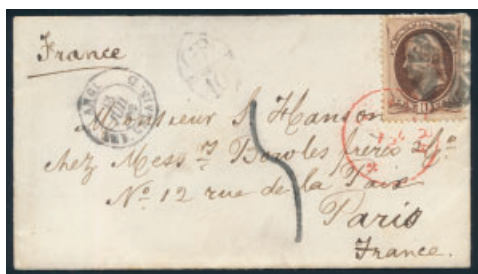 France
GB
10
Monsieur S. Hanson
chez Messrs Bowles frères & Co
No 12 rue de la Paix
Paris
France.
5